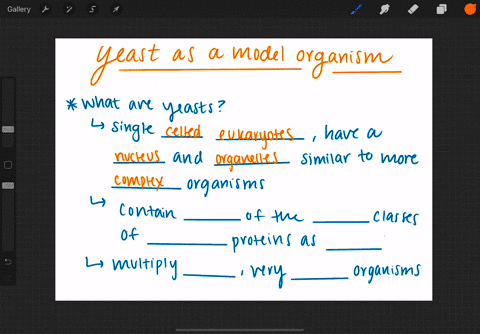 Gallery
Yeast as a model organism
* What are yeasts?
↳ single celled eukaryotes, have a
nucleus and organelles similar to more
complex organisms
↳ contain ______ of the ______ classes
of ________ proteins as ______
↳ multiply ______, very ______ organisms